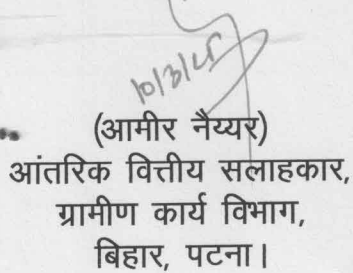 10/3/25
(आमीर नैय्यर)
आंतरिक वित्तीय सलाहकार,
ग्रामीण कार्य विभाग,
बिहार, पटना।